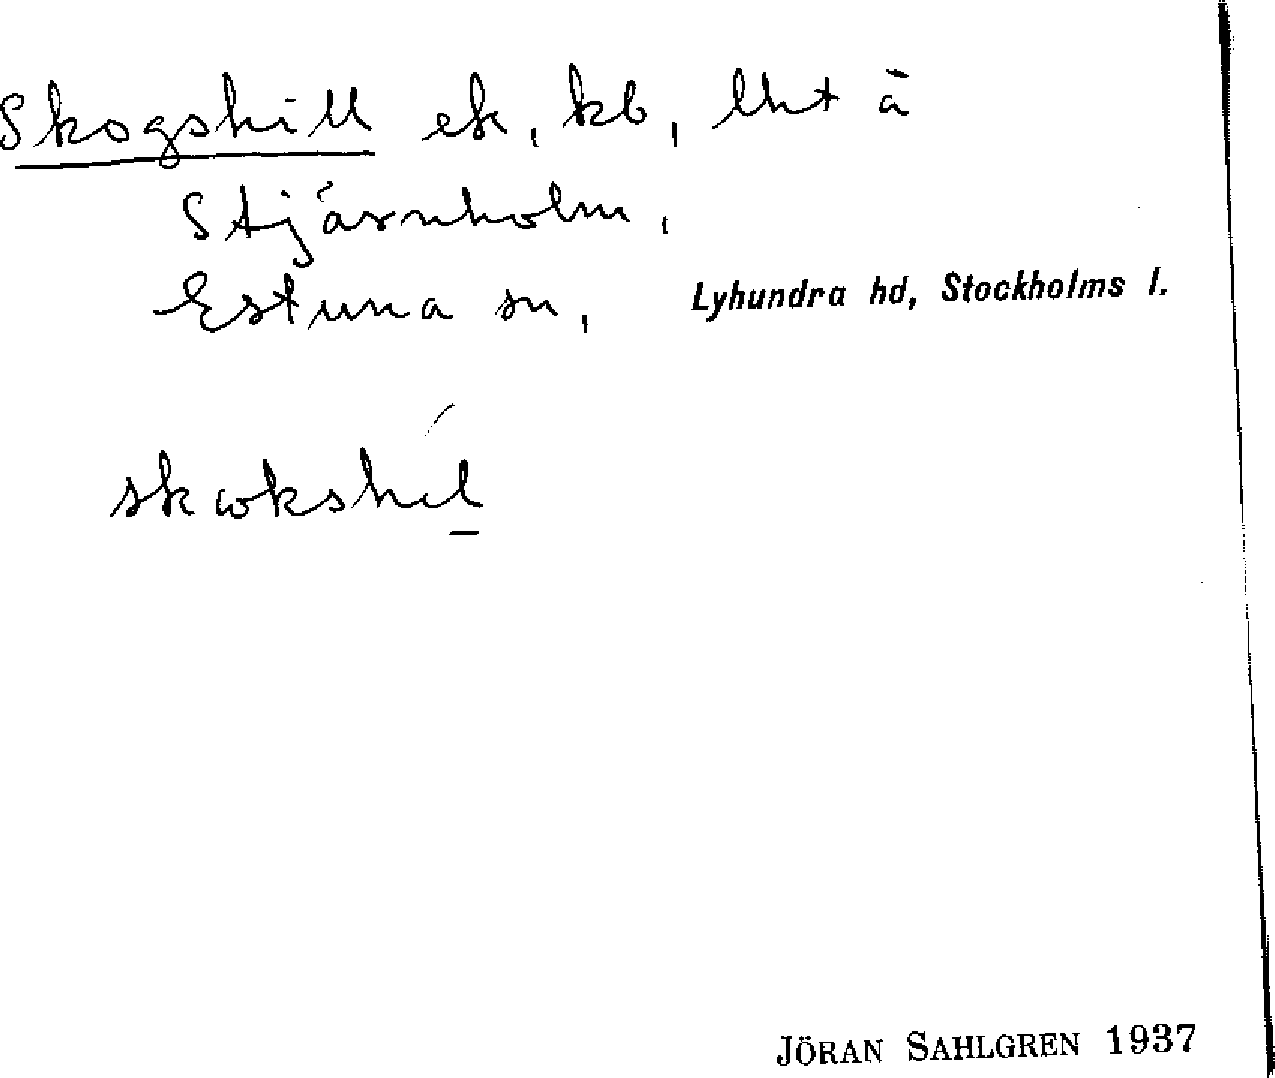 Skogshill ek, kb, lht å
Stjärnholm,
Estuna sn, Lyhundra hd, Stockholms l.
JÖRAN SAHLGREN 1937